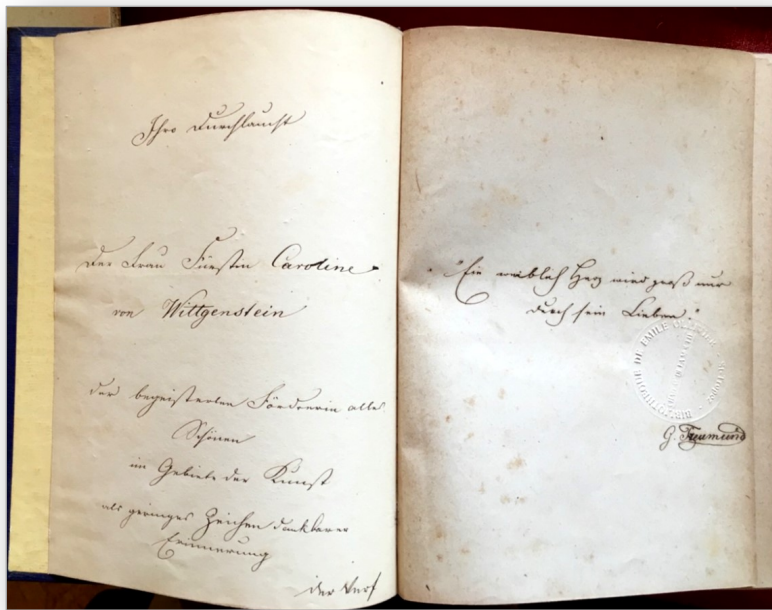 Ihro Durchlaucht
der Frau Fürstin Caroline
von Wittgenstein
der begeisterten Förderin alles
Schönen
im Gebiete der Kunst
als geringes Zeichen dankbarer
Erinnerung
der Verf
"Ein weiblich Herz wird groß nur
durch sein Lieben."
BIBLIOTHEQUE DE EMILE
G. Freumund